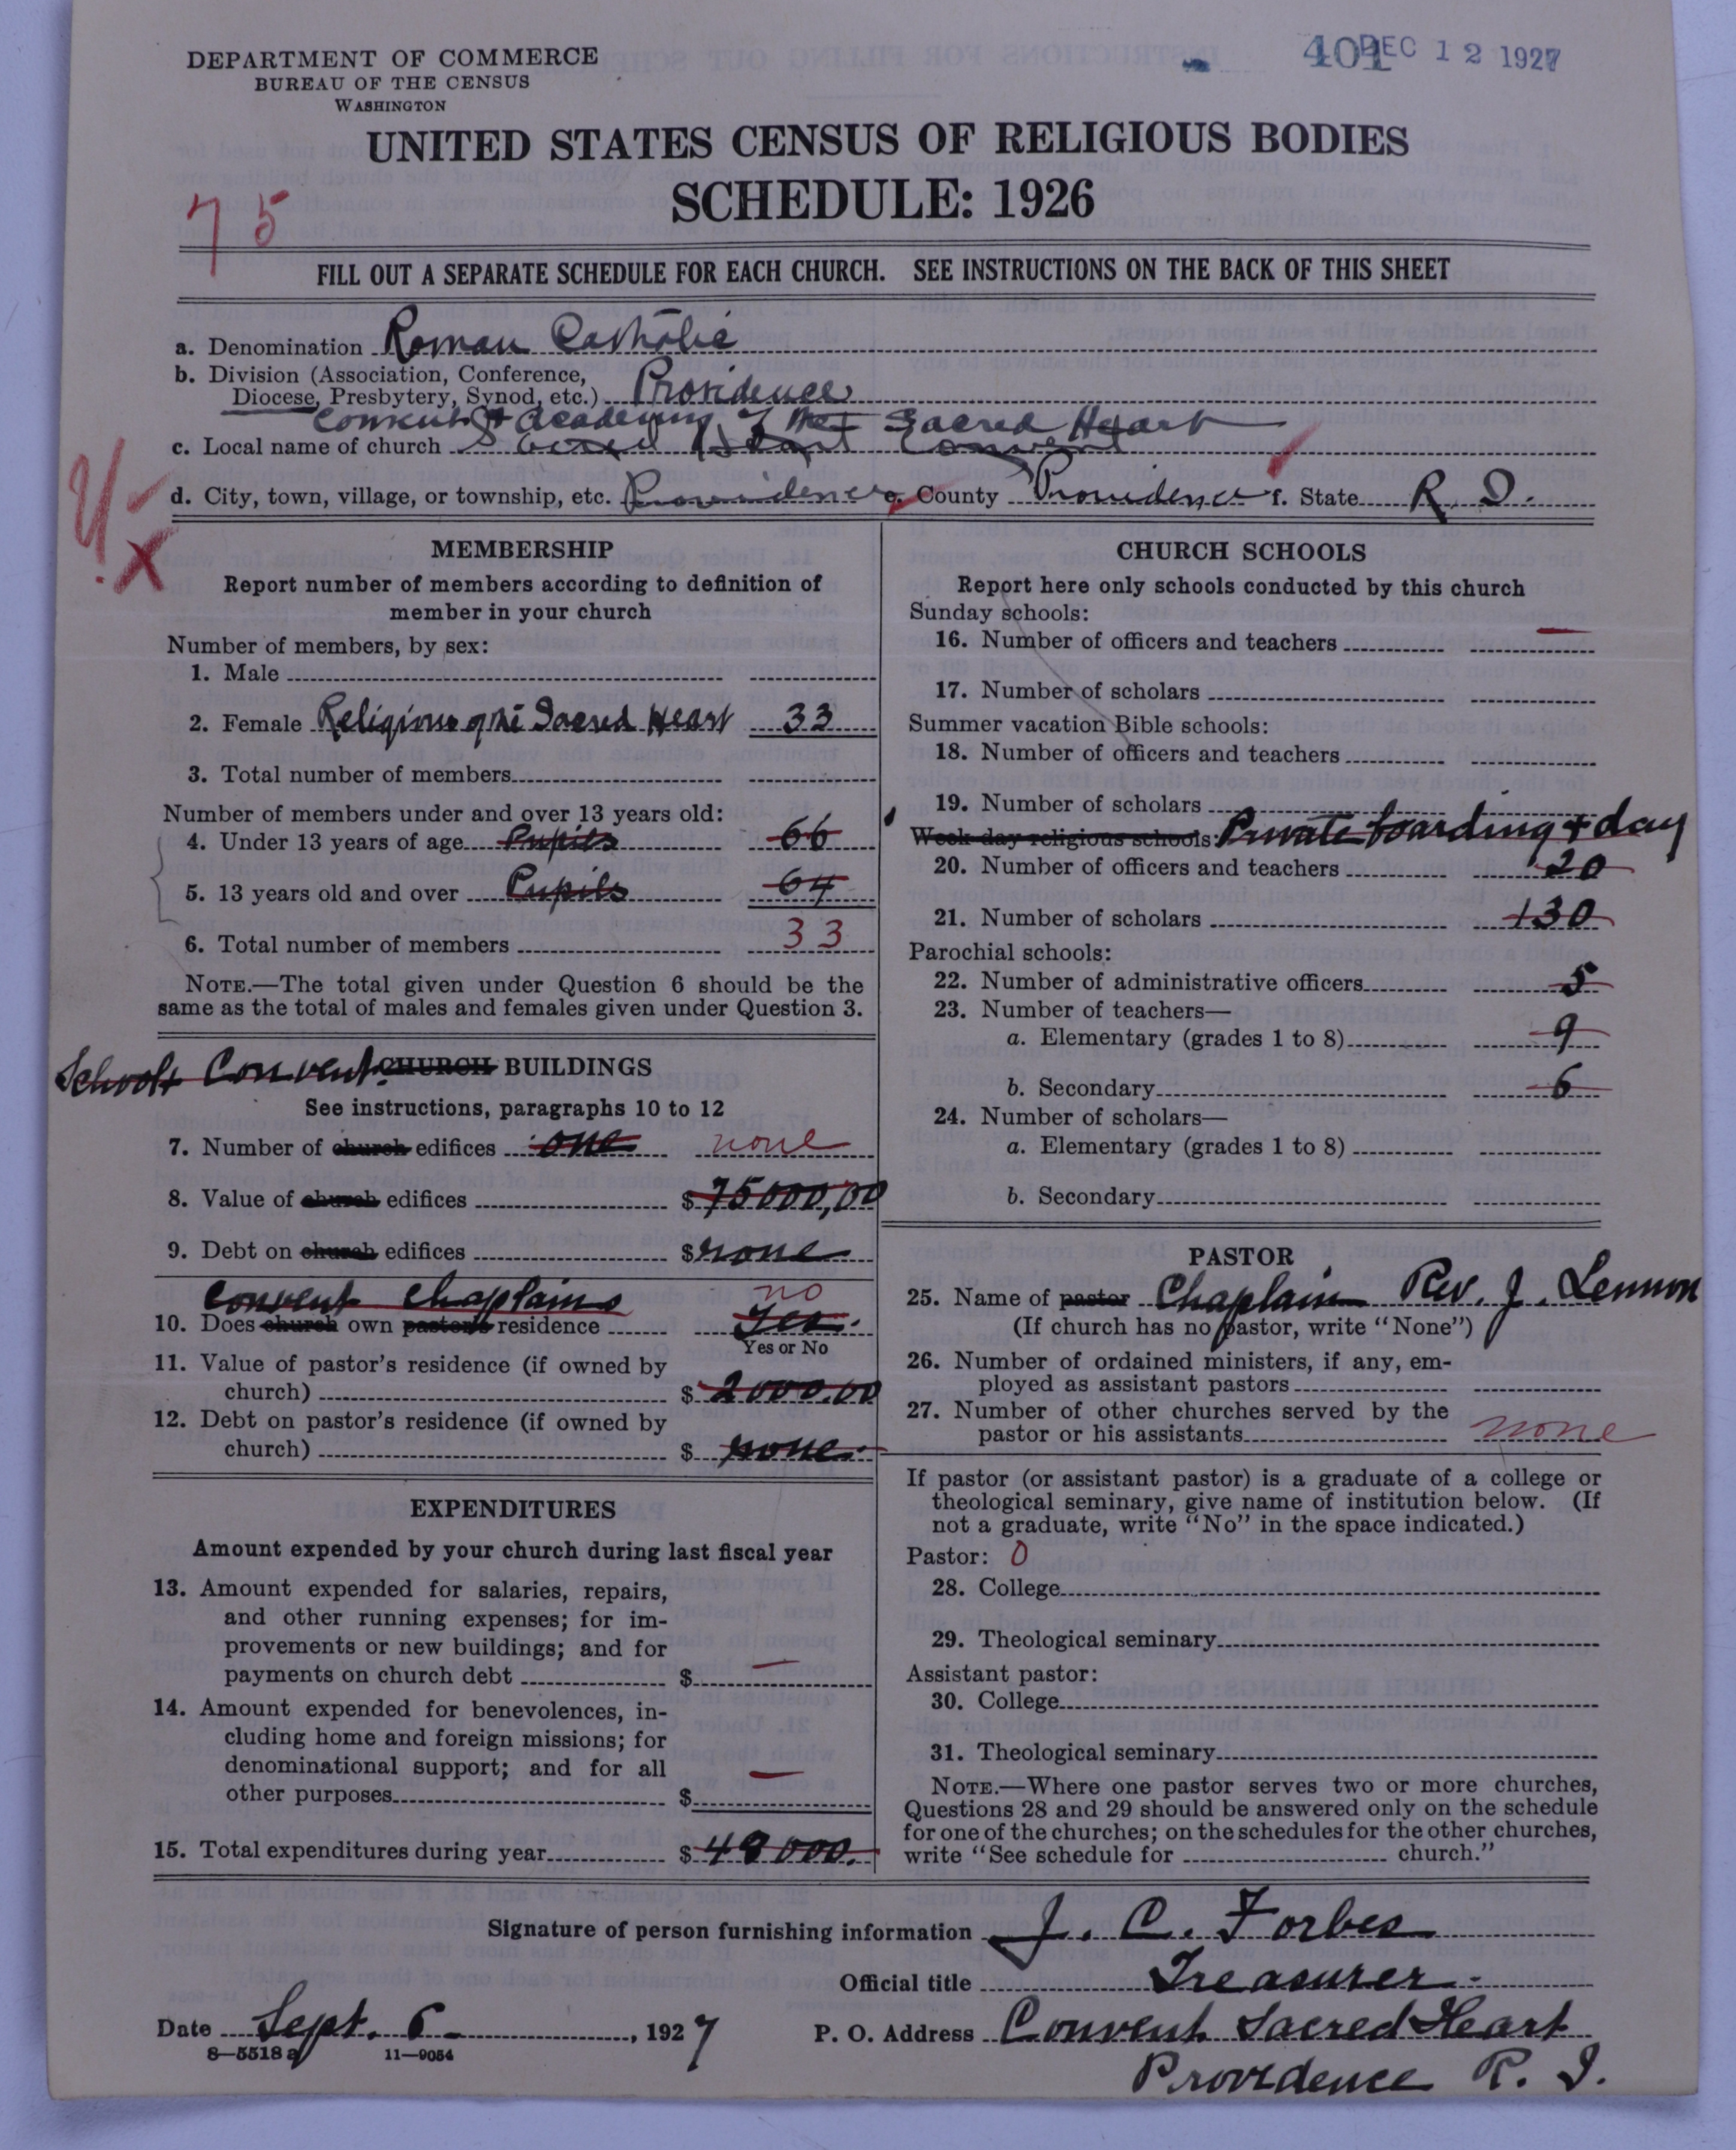 DEPARTMENT OF COMMERCE
BUREAU OF THE CENSUS
WASHINGTON
401 DEC 12 1927
UNITED STATES CENSUS OF RELIGIOUS BODIES
SCHEDULE: 1926
75
FILL OUT A SEPARATE SCHEDULE FOR EACH CHURCH. SEE INSTRUCTIONS ON THE BACK OF THIS SHEET
a. Denomination Roman Catholic
b. Division (Association, Conference,
Diocese, Presbytery, Synod, etc.) Providence
Convent & Academy of the Sacred Heart
c. Local name of church Sacred Heart Convent
d. City, town, village, or township, etc. Providence e. County Providence f. State R. I.
X
MEMBERSHIP
Report number of members according to definition of
member in your church
Number of members, by sex:
1. Male
2. Female Religious of the Sacred Heart 33
3. Total number of members
Number of members under and over 13 years old:
4. Under 13 years of age Pupils 66
5. 13 years old and over Pupils 64
6. Total number of members 33
NOTE.—The total given under Question 6 should be the
same as the total of males and females given under Question 3.
School & Convent CHURCH BUILDINGS
See instructions, paragraphs 10 to 12
7. Number of church edifices one none
8. Value of church edifices $ 75000,00
9. Debt on church edifices $ none
Convent Chaplains no
10. Does church own pastor's residence Yes.
Yes or No
11. Value of pastor's residence (if owned by
church) $ 2000.00
12. Debt on pastor's residence (if owned by
church) $ none.
EXPENDITURES
Amount expended by your church during last fiscal year
13. Amount expended for salaries, repairs,
and other running expenses; for im-
provements or new buildings; and for
payments on church debt $ —
14. Amount expended for benevolences, in-
cluding home and foreign missions; for
denominational support; and for all
other purposes $ —
15. Total expenditures during year $ 48000.
CHURCH SCHOOLS
Report here only schools conducted by this church
Sunday schools:
16. Number of officers and teachers —
17. Number of scholars
Summer vacation Bible schools:
18. Number of officers and teachers
19. Number of scholars
Week-day religious schools: Private boarding + day
20. Number of officers and teachers 20
21. Number of scholars 130
Parochial schools:
22. Number of administrative officers 5
23. Number of teachers—
a. Elementary (grades 1 to 8) 9
b. Secondary 6
24. Number of scholars—
a. Elementary (grades 1 to 8)
b. Secondary
PASTOR
25. Name of pastor Chaplain Rev. J. Lennon
(If church has no pastor, write "None")
26. Number of ordained ministers, if any, em-
ployed as assistant pastors
27. Number of other churches served by the
pastor or his assistants none
If pastor (or assistant pastor) is a graduate of a college or
theological seminary, give name of institution below. (If
not a graduate, write "No" in the space indicated.)
Pastor: 0
28. College
29. Theological seminary
Assistant pastor:
30. College
31. Theological seminary
NOTE.—Where one pastor serves two or more churches,
Questions 28 and 29 should be answered only on the schedule
for one of the churches; on the schedules for the other churches,
write "See schedule for church."
Signature of person furnishing information J. C. Forbes
Official title Treasurer.
Date Sept. 6 , 1927 P. O. Address Convent Sacred Heart
8—5518 a 11—9054
Providence R. I.